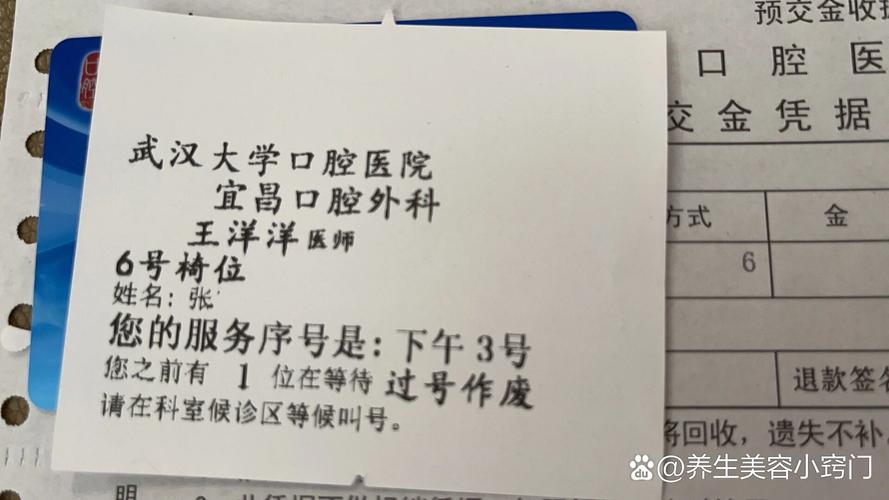 武汉大学口腔医院
宜昌口腔外科
王洋洋医师
6号椅位
姓名：张
您的服务序号是：下午 3号
您之前有 1 位在等待 过号作废
请在科室候诊区等候叫号。
口腔
预交金收
口 腔 医
交 金 凭 据
方式 金
6
退款签名
将回收，遗失不补
明
@养生美容小窍门